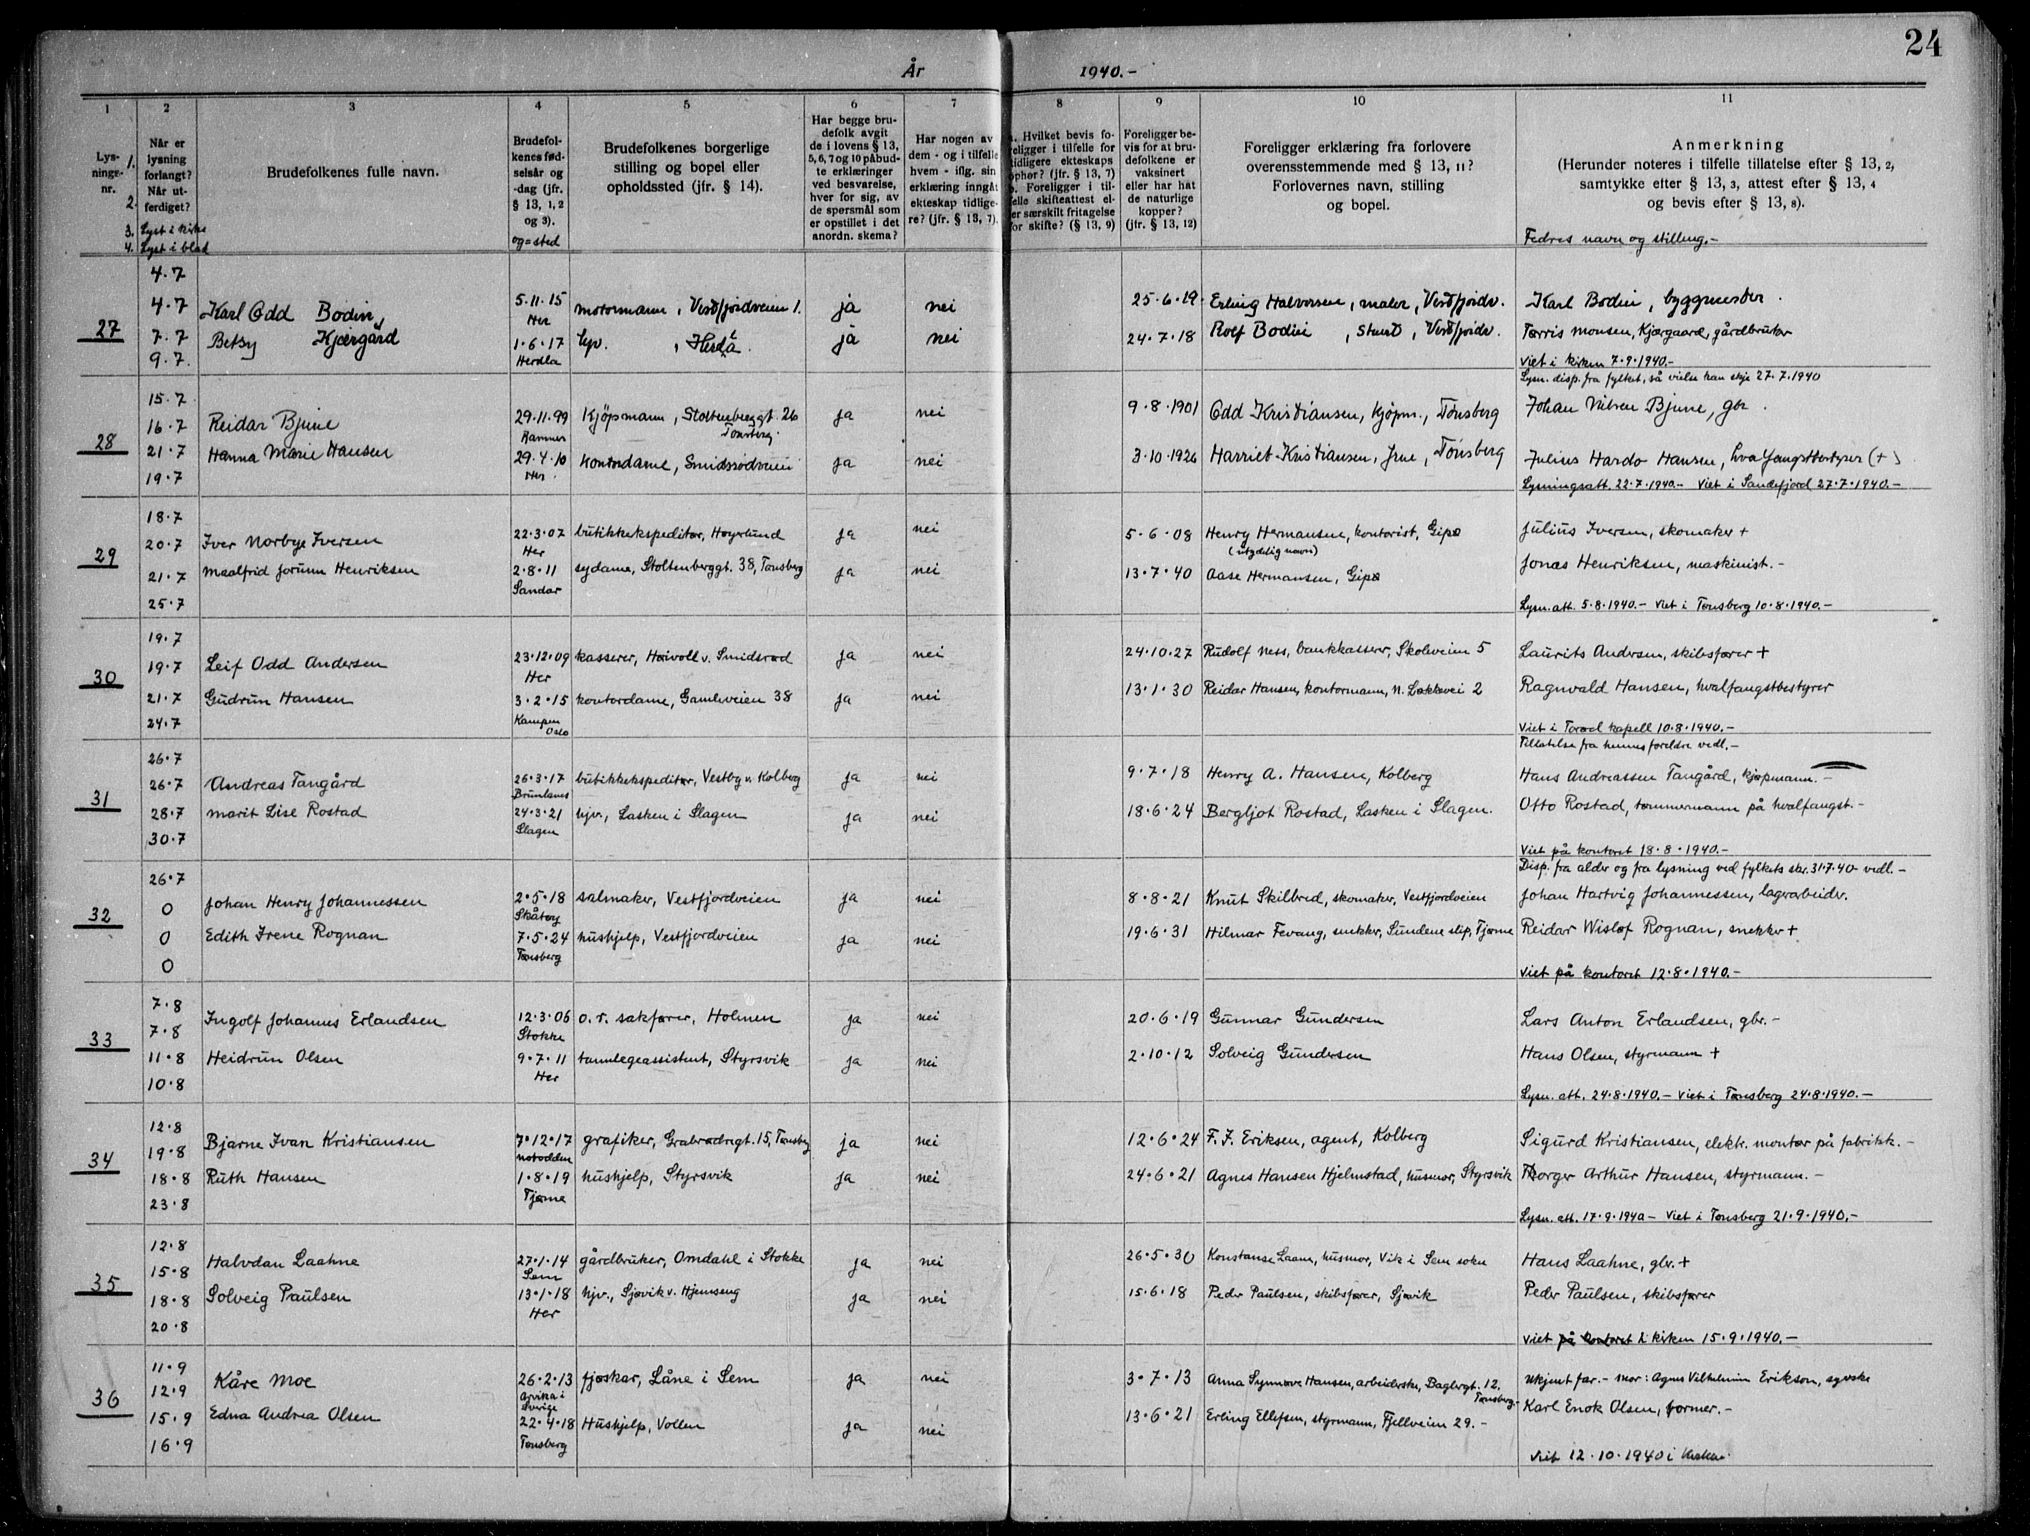 24
År 1940.-
1 2 3 4 5 6 7 8 9 10 11
Lys-
nings-
nr.
1.
2.
3. Lyst i kirke
4. Lyst i blad
Når er
lysning
forlangt?
Når ut-
ferdiget?
Brudefolkenes fulle navn.
Brudefol-
kenes fød-
selsår og
-dag (jfr.
§ 13, 1, 2
og 3).
og=sted
Brudefolkenes borgerlige
stilling og bopel eller
opholdssted (jfr. § 14).
Har begge bru-
defolk avgit
de i lovens § 13,
5, 6, 7 og 10 påbud-
te erklæringer
ved besvarelse,
hver for sig, av
de spørsmål som
er opstillet i det
anordn. skema?
Har nogen av
dem - og i tilfelle
hvem - iflg. sin
erklæring inngåt
ekteskap tidlige-
re? (jfr. § 13, 7).
Hvilket bevis fo-
religger i tilfelle for
tidligere ekteskaps
ophør? (jfr. § 13, 7)
Foreligger i til-
felle skifteattest el-
er særskilt fritagelse
for skifte? (§ 13, 9)
Foreligger be-
vis for at bru-
defolkene er
vaksinert
eller har hat
de naturlige
kopper?
(jfr. § 13, 12)
Foreligger erklæring fra forlovere
overensstemmende med § 13, 11?
Forlovernes navn, stilling
og bopel.
Anmerkning
(Herunder noteres i tilfelle tillatelse efter § 13, 2,
samtykke efter § 13, 3, attest efter § 13, 4
og bevis efter § 13, 8).
Fedres navn og stilling.-
27
4.7
4.7
7.7
9.7.
Karl Odd Bodin, 5.11.15 motormann, Vestfjordveien 1. ja nei 25.6.19 Erling Halvorsen, maler, Vestfjordv. Karl Bodin, byggmester.
Her
Betsy Kjærgård 1.6.17 hjv., Herdla. ja nei 24.7.18 Rolf Bodin, Stuert, Vestfjordv. Torris Monsen, Kjærgaard, gårdbruker
Herdla
Viet i kirken 7.9.1940.-
28
15.7
16.7
21.7
19.7
Lysn. disp. fra fylket, så vielse kan skje 27.7.1940
Reidar Bjune 29.11.99 Kjøpmann, Stoltenberggt. 26 ja nei 9.8.1901 Odd Kristiansen, kjøpm., Tønsberg Johan Nilsen Bjune, gbr.
Ramnes Tønsberg
Hanna Marie Hansen 29.4.10 kontordame, Smidsrødveien ja nei 3.10.1926 Harriet Kristiansen, frue, Tønsberg Julius Hardo Hansen, hvalfangstbestyrer (+)
Her.
Lysningsatt. 22.7.1940.- Viet i Sandefjord 27.7.1940.-
29
18.7
20.7
21.7
25.7
Iver Norbye Iversen 22.3.07 butikkekspeditør, Høyslund ja nei 5.6.08 Henry Hermansen, kontorist, Gipø Julius Iversen, skomaker +
Her (utydelig navn)
Maalfrid Jorunn Henriksen 2.8.11 sydame, Stoltenberggt. 38, Tønsberg ja nei 13.7.40 Aase Hermansen, Gipø Jonas Henriksen, maskinist.-
Sandar
Lysn. att. 5.8.1940.- Viet i Tønsberg 10.8.1940.-
30
19.7
19.7
21.7
24.7
Leif Odd Andersen 23.12.09 kasserer, Heivoll v. Smidsrød ja nei 24.10.27 Rudolf Ness, bankkasserer, Skoleveien 5 Laurits Andersen, skibsfører +
Her
Gudrun Hansen 3.2.15 kontordame, Gamleveien 38 ja nei 13.1.30 Reidar Hansen, kontormann, N. Løkkevei 2 Ragnvald Hansen, hvalfangstbestyrer
Kampen
Oslo
Viet i Torød kapell 10.8.1940.-
31
26.7
26.7
28.7
30.7
Tillatelse fra hennes foreldre vedl.-
Andreas Tangård 26.3.17 butikkekspeditør, Vestby v. Kolberg ja nei 9.7.18 Henry A. Hansen, Kolberg Hans Andreassen Tangård, kjøpmann.-
Brunlanes
Marit Lise Rostad 24.3.21 hjv., Lasken i Slagen ja nei 18.6.24 Bergljot Rostad, Lasken i Slagen. Otto Rostad, tømmermann på hvalfangst.-
Slagen
Viet på kontoret 18.8.1940.-
32
26.7
0
0
0
Disp. fra alder og fra lysning ved fylkets skr. 31.7.40 vedl.-
Johan Henry Johannessen 2.5.18 salmaker, Vestfjordveien ja nei 8.8.21 Knut Skilbred, skomaker, Vestfjordveien Johan Hartvig Johannessen, lagerarbeider.
Skåtøy
Edith Irene Rognan 7.5.24 hushjelp, Vestfjordveien ja nei 19.6.31 Hilmar Fevang, snekker, Sundene slip, Tjøme Reidar Wisløf Rognan, snekker +
Tønsberg
Viet på kontoret 12.8.1940.-
33
7.8
7.8
11.8
10.8
Ingolf Johannes Erlandsen 12.3.06 o.r. sakfører, Holmen ja nei 20.6.19 Gunnar Gundersen Lars Anton Erlandsen, gbr.-
Stokke
Heidrun Olsen 9.7.11 tannlegeassistent, Styrsvik ja nei 2.10.12 Solveig Gundersen Hans Olsen, styrmann +
Her
Lysn. att. 24.8.1940.- Viet i Tønsberg 24.8.1940.-
34
12.8
19.8
18.8
23.8
Bjarne Ivan Kristiansen 7.12.17 grafiker, Grabrødregt. 15, Tønsberg ja nei 12.6.24 F. F. Eriksen, agent, Kolberg Sigurd Kristiansen, elektr. montør på fabrikk.-
Notodden
Ruth Hansen 1.8.19 hushjelp, Styrsvik ja nei 24.6.21 Agnes Hansen Hjelmstad, husmor, Styrsvik Thorger Arthur Hansen, styrmann.-
Tjøme
Lysn. att. 17.9.1940- Viet i Tønsberg 21.9.1940.-
35
12.8
15.8
18.8
20.8
Halvdan Laahne 27.1.14 gårdbruker, Omdahl i Stokke ja nei 26.5.30 Konstanse Laane, husmor, Vik i Sem sokn Hans Laahne, gbr. +
Sem
Solveig Paulsen 13.1.18 hjv., Sjøvik v. Hjemseng ja nei 15.6.18 Peder Paulsen, skibsfører, Sjøvik Peder Paulsen, skibsfører
Her
Viet på kontoret i kirken 15.9.1940.-
36
11.9
12.9
15.9
16.9
Kåre Moe 26.2.13 fjøskar, Låne i Sem ja nei 3.7.13 Anna Synnøve Hansen, arbeiderske, Baglergt. 12. Ukjent far.- Mor: Agnes Vilhelmine Erikson, syerske
Arvika i
Sverige Tønsberg.
Edna Andrea Olsen 22.4.18 Hushjelp, Vollen ja nei 13.6.21 Erling Ellefsen, styrmann, Fjellveien 29.- Karl Enok Olsen, former.-
Tønsberg
Viet 12.10.1940 i kirken.